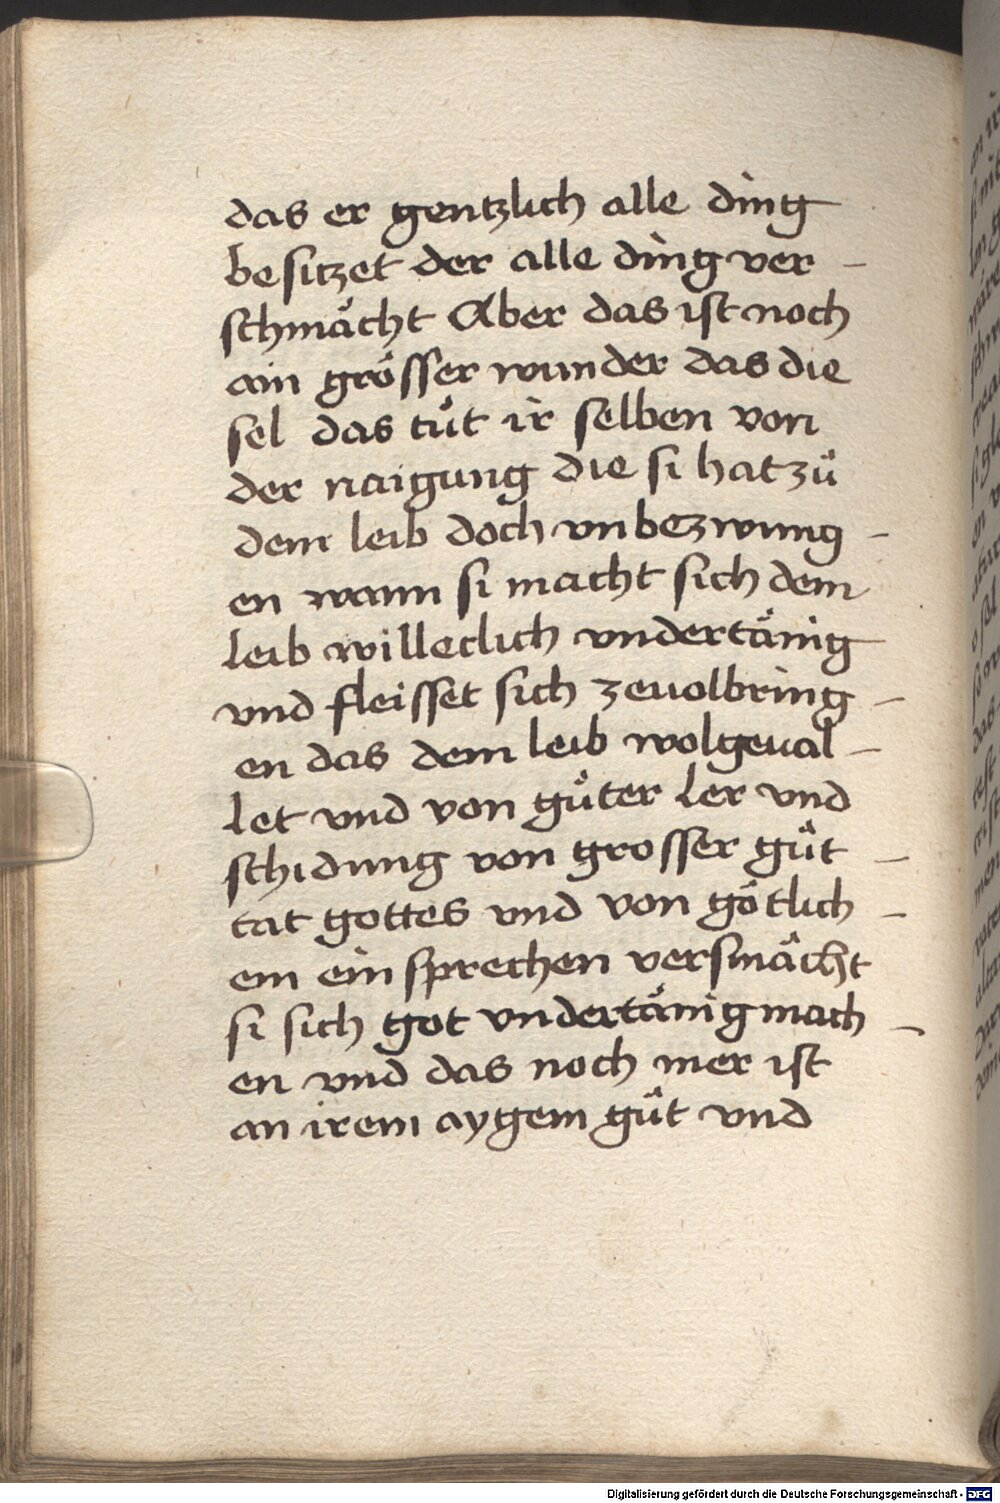 das er gentzlich alle ding
besitzet der alle ding ver -
schmächt Aber das ist noch
ain grösser wunder das die
sel das tuͦt ir selben von
der naigung die si hat zuͦ
dem leib doch vnbezwung -
en wann si macht sich dem
leib willeclich vndertänig
vnd fleisset sich zeuolbring -
en das dem leib wolgeual -
let vnd von guͦter ler vnd
schidung von grosser guͦt -
tat gottes vnd von götlich -
em einsprechen versmächt
si sich got vndertänig mach -
en vnd das noch mer ist
an irem aygem guͦt vnd
Digitalisierung gefördert durch die Deutsche Forschungsgemeinschaft - DFG